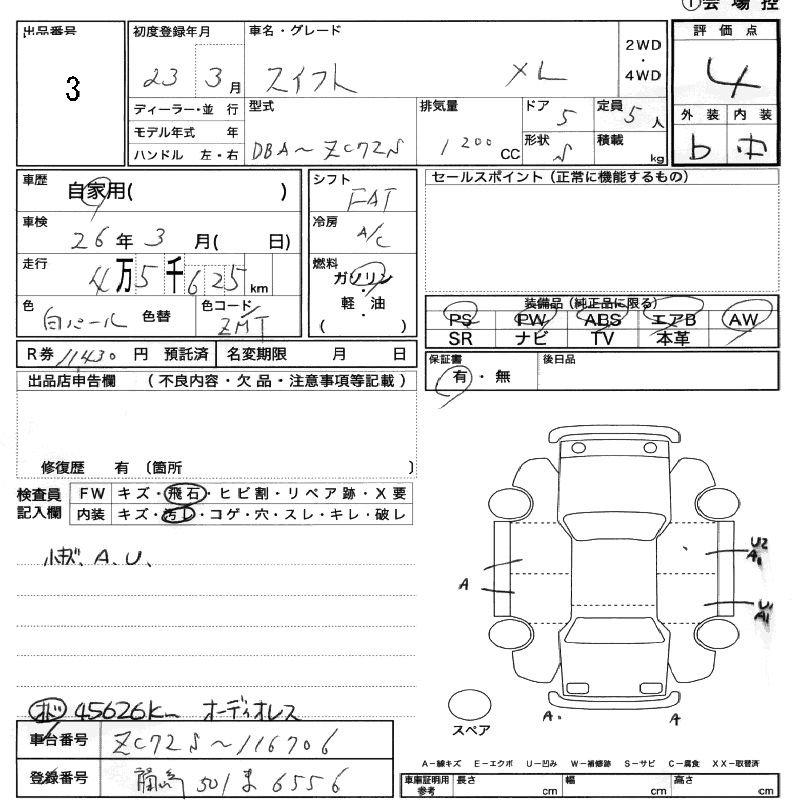 ①会場控
出品番号
3
初度登録年月
23 3月
車名・グレード
スイフト XL
2WD
・
4WD
評価点
4
ディーラー・並 行
モデル年式 年
ハンドル 左・右
型式
DBA〜ZC72S
排気量
1200 CC
ドア
5
定員
5人
形状
S
積載
kg
外装 内装
b 中
車歴
自家用( )
車検
26年3月( 日)
走行
4万5千625km
色
白パール 色替
色コード
ZMT
シフト
FAT
冷房
A/C
燃料
ガソリン
・
軽・油
( )
セールスポイント(正常に機能するもの)
装備品(純正品に限る)
PS PW ABS エアB AW
SR ナビ TV 本革
R券 11430 円 預託済 名変期限 月 日
保証書
有・無
後日品
出品店申告欄 (不良内容・欠品・注意事項等記載)
修復歴 有〔箇所 〕
検査員
記入欄
FW キズ・飛石・ヒビ割・リペア跡・X要
内装 キズ・汚レ・コゲ・穴・スレ・キレ・破レ
小キズ、A、U、
45626km オーディオレス
車台番号 ZC72S〜116706
登録番号 501 ま 6556
A
U2
A1
U1
A1
A
A
スペア
A−線キズ E−エクボ U−凹み W−補修跡 S−サビ C−腐食 XX−取替済
車庫証明用
参考
長さ cm 幅 cm 高さ cm